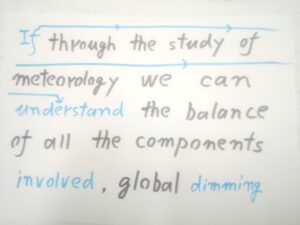 If through the study of
meteorology we can
understand the balance
of all the components
involved, global dimming